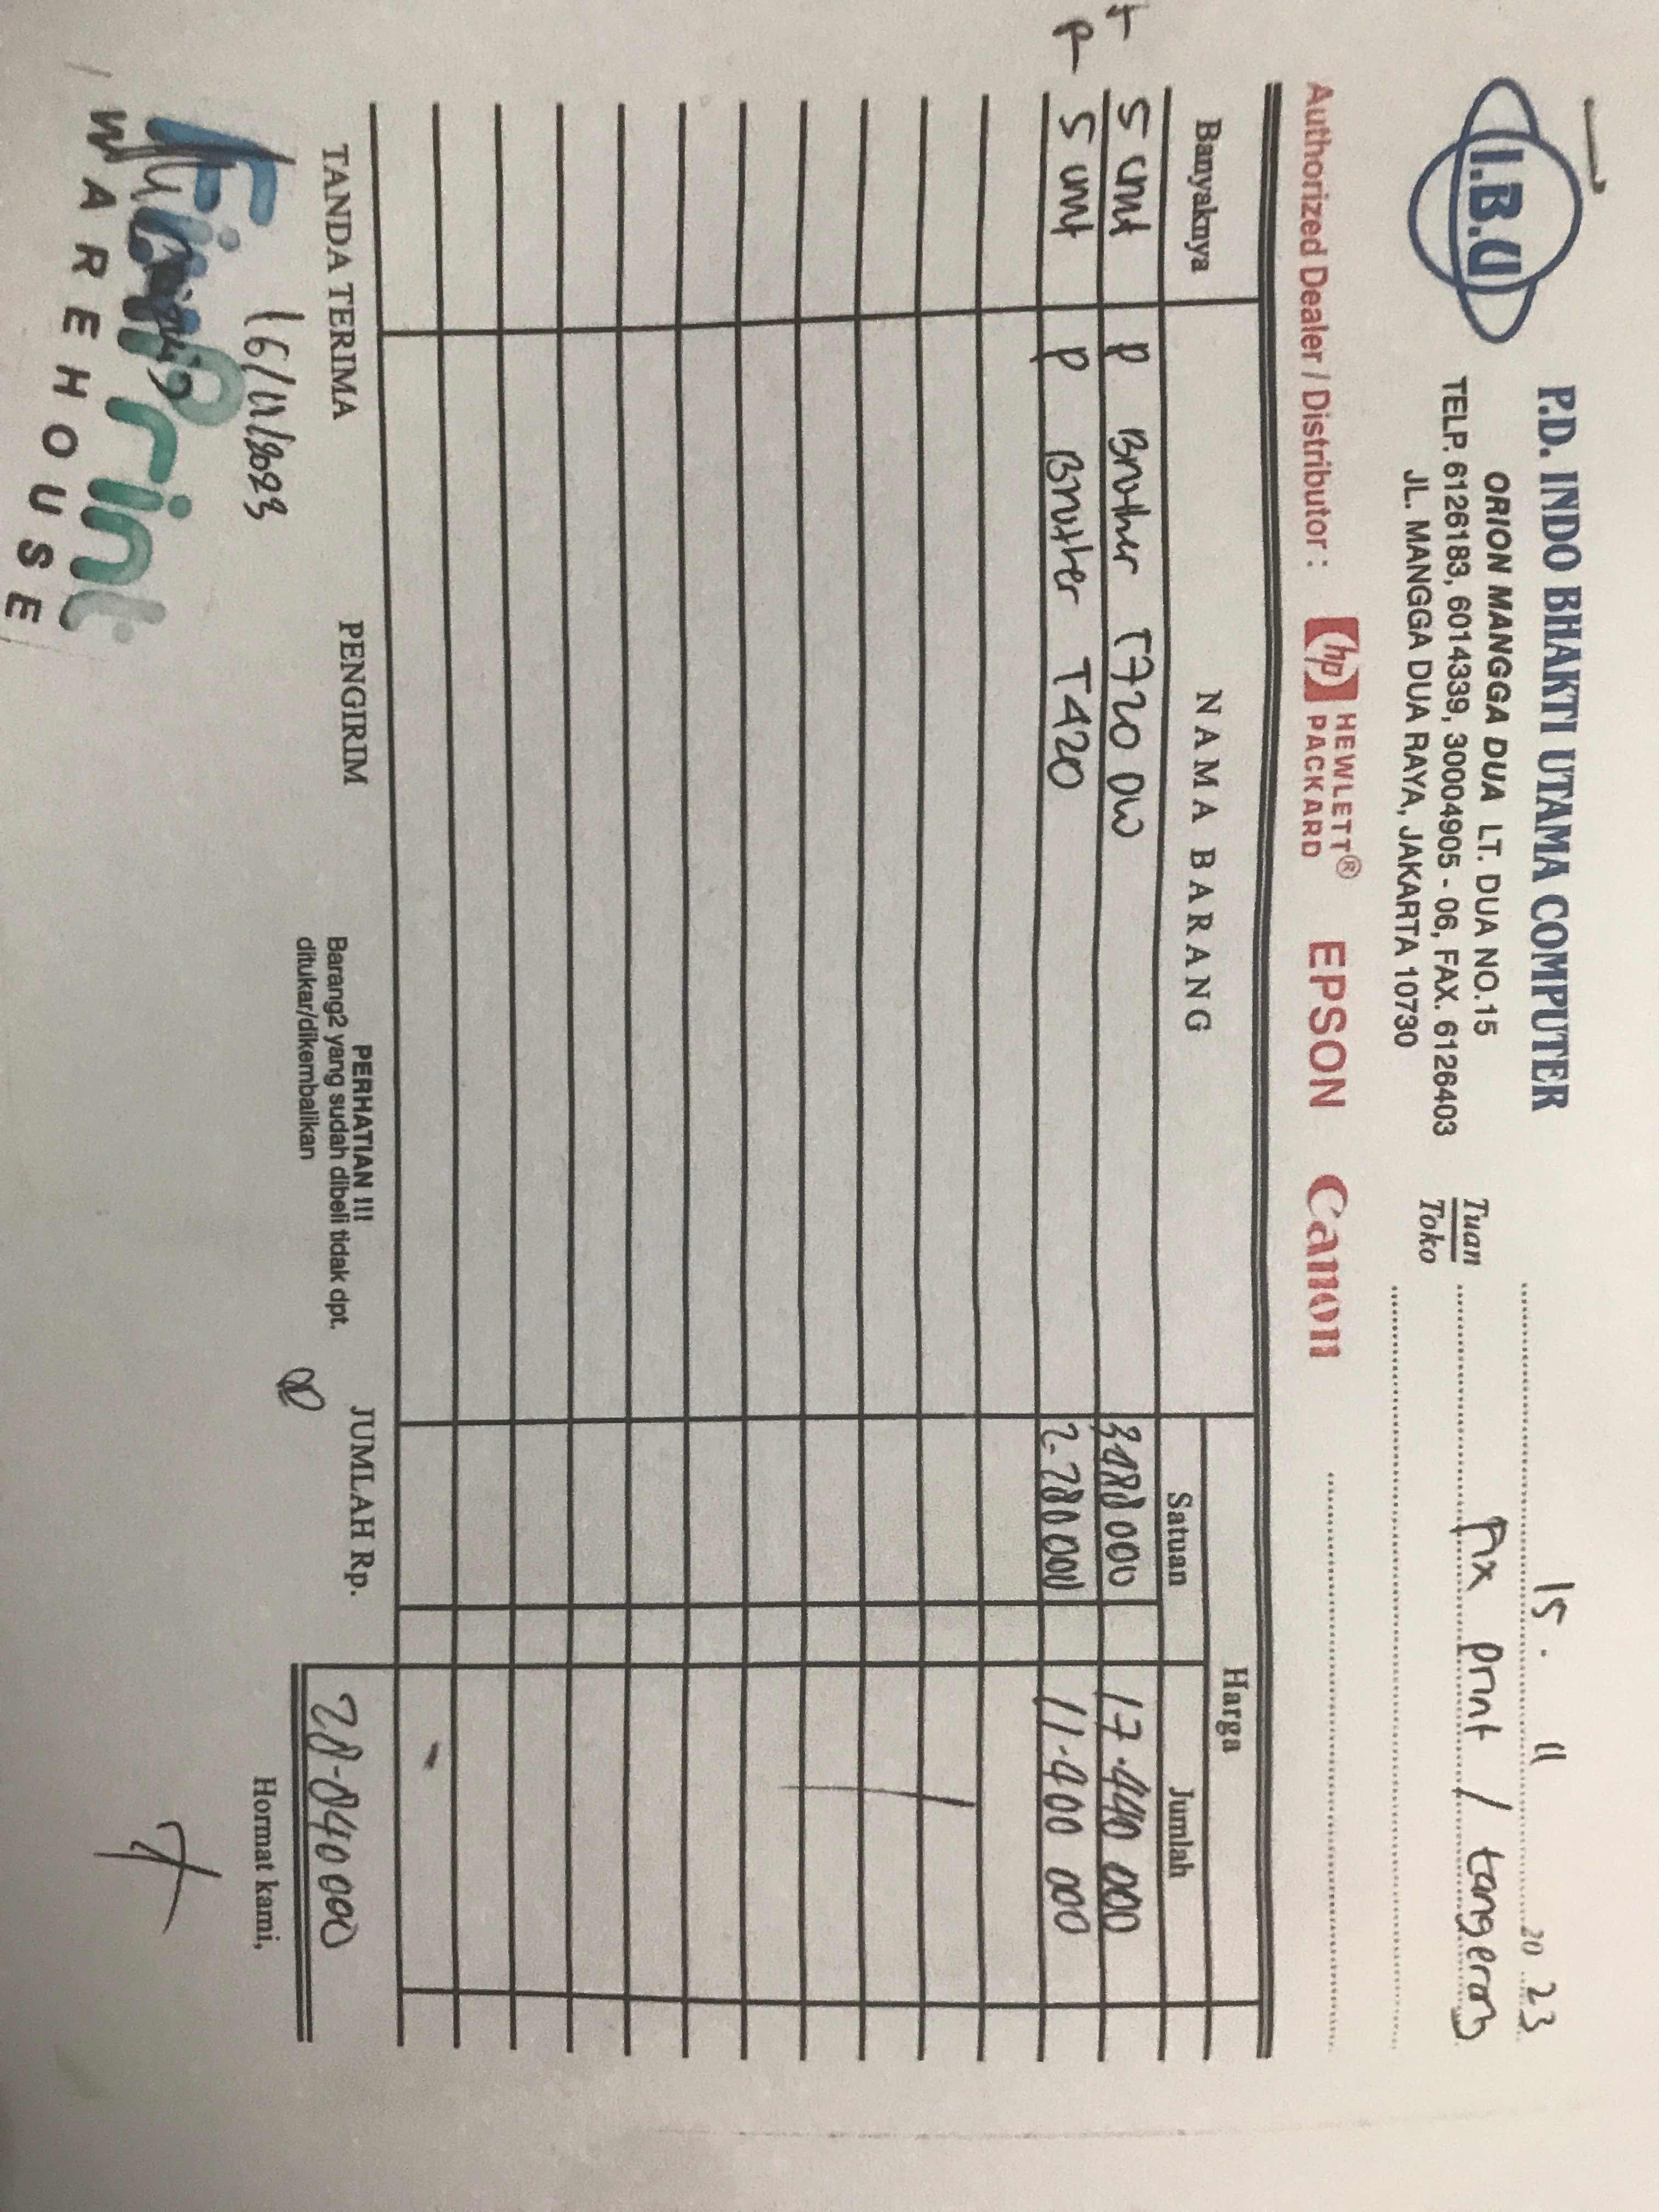 I.B.U
P.D. INDO BHAKTI UTAMA COMPUTER
ORION MANGGA DUA LT. DUA NO.15
TELP. 6126183, 6014339, 30004905 - 06, FAX. 6126403
JL. MANGGA DUA RAYA, JAKARTA 10730
15 . 11 20 23
Tuan
Toko
Fix print / tangerang
Authorized Dealer / Distributor : hp HEWLETT® PACKARD EPSON Canon
Banyaknya NAMA BARANG Harga
Satuan Jumlah
5 unit P Brother T720 DW 000 17.440 000
5 unit P Brother T420 2.280000 11.400 000
TANDA TERIMA PENGIRIM
PERHATIAN !!!
Barang2 yang sudah dibeli tidak dpt.
ditukar/dikembalikan
JUMLAH Rp. 28.840 000
Hormat kami,
16/11/2023
FixPrint
WAREHOUSE